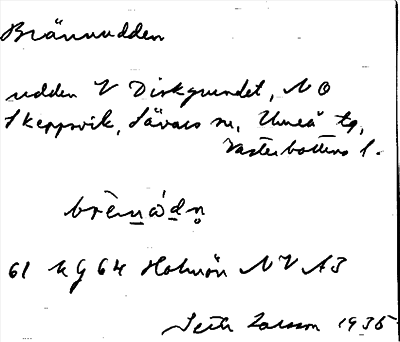 Brännudden
udden V Dirkgrundet, NO
Skeppsvik, Sävars sn, Umeå tg,
Västerbottens l.
brènɷ́dn̥
61 KG 64 Holmön NV A3
Seth Larsson 1935